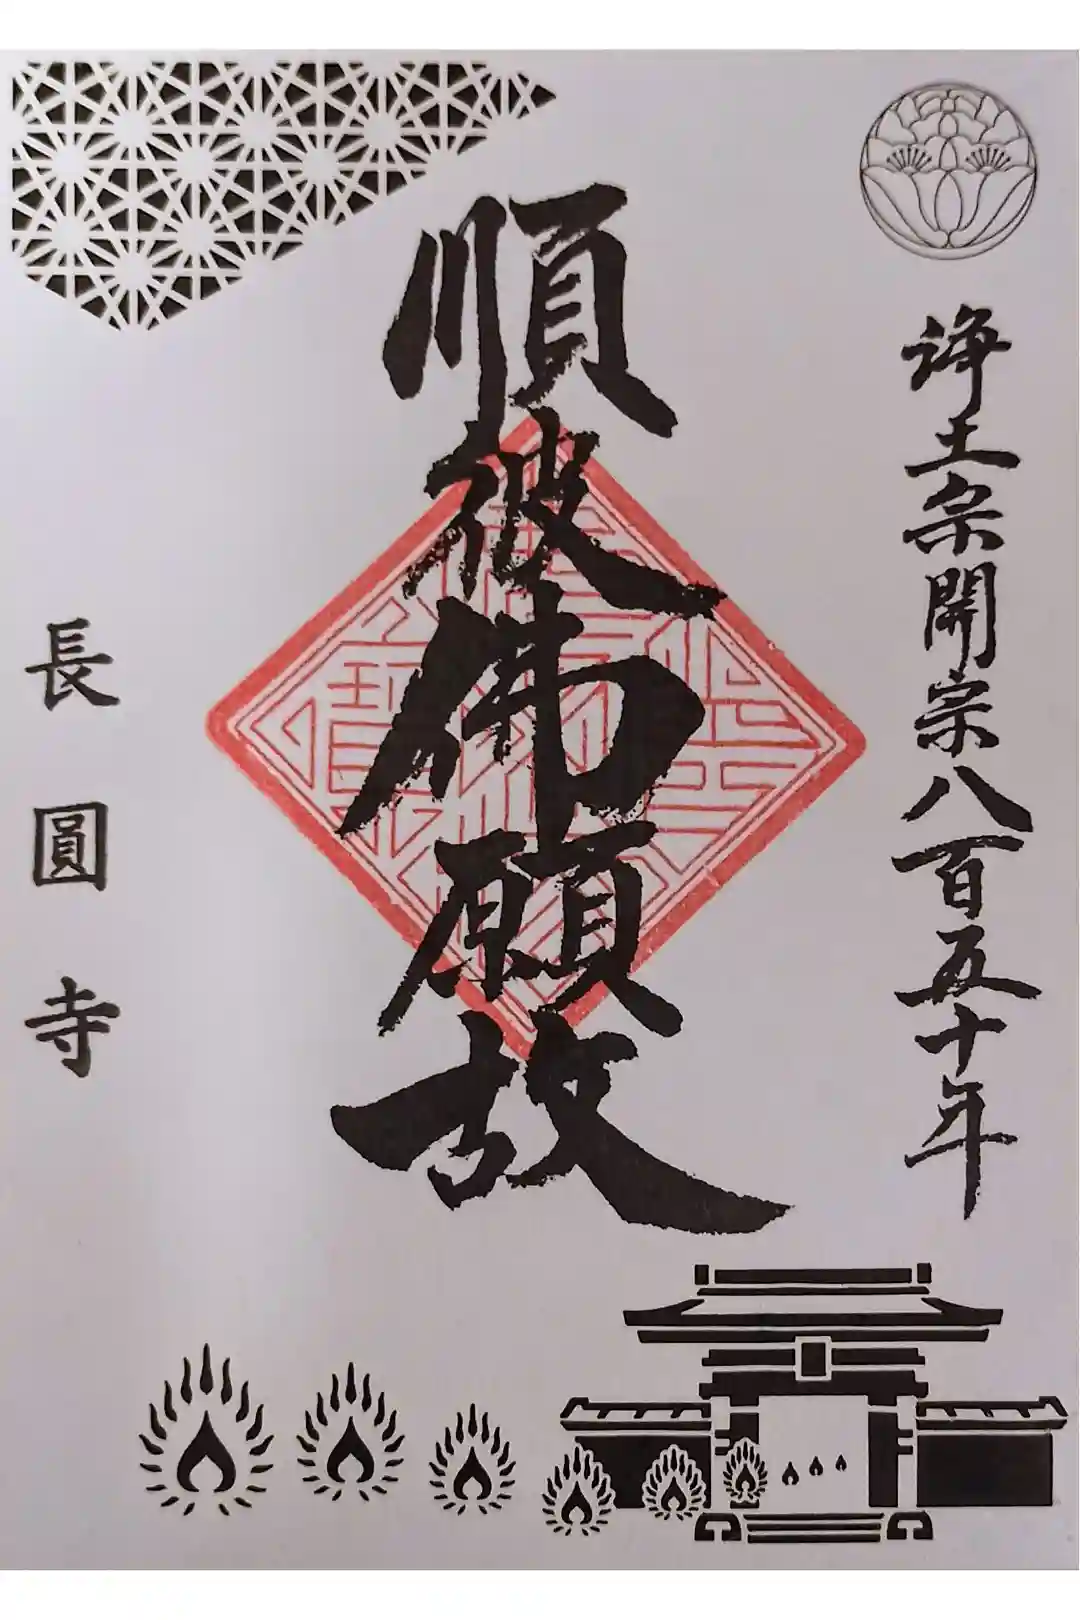 浄土宗開宗八百五十年
順彼佛願故
長圓寺